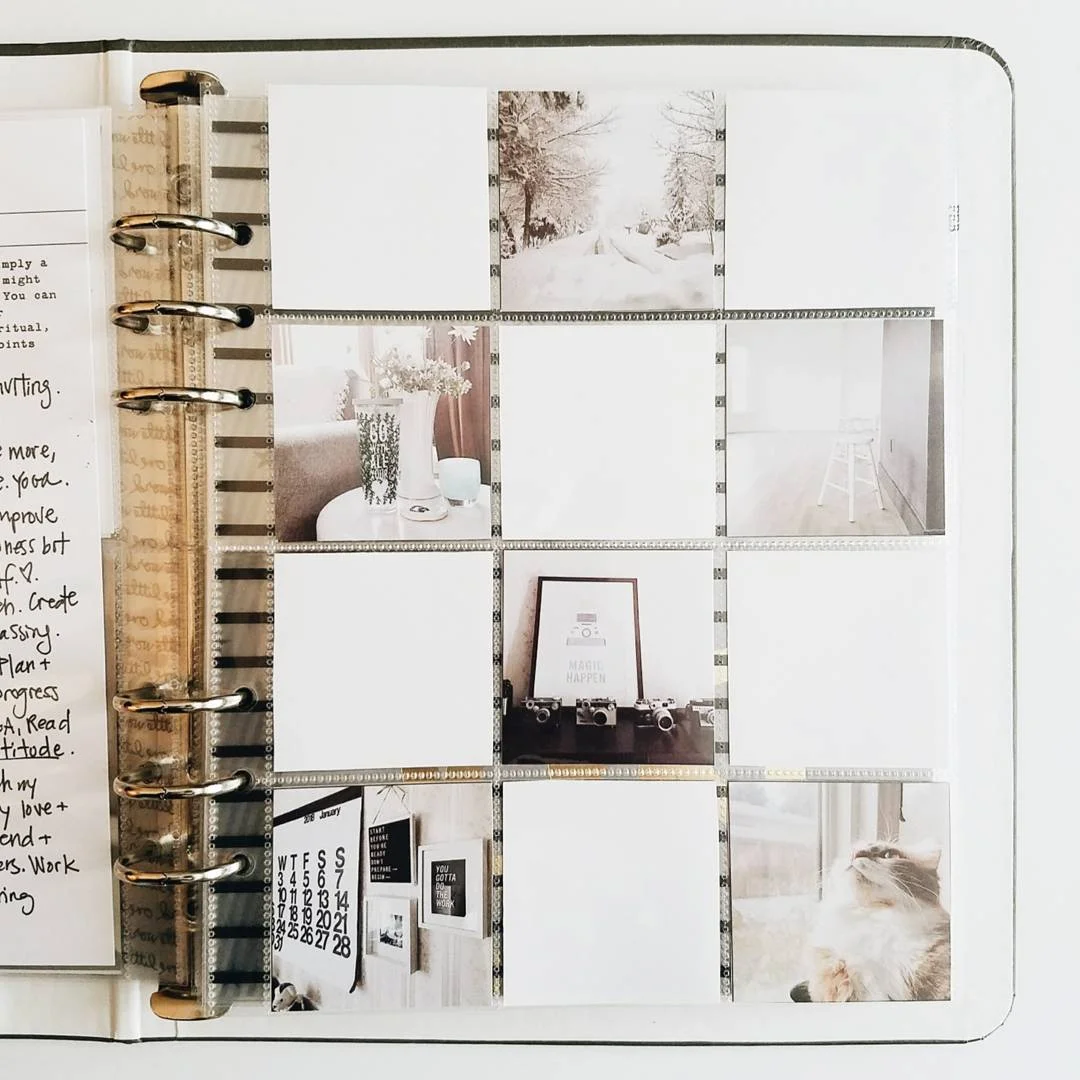 mply a
might
You can
r
ritual,
oints
nviting.
e more,
e. yoga.
mprove
ness but
f. ♡.
ch. Create
assing.
Plan +
progress
A, Read
titude.
h my
y love +
end +
ers. Work
ring
GO
MAGIC
HAPPEN
2018 January
W T F S S
3 4 5 6 7
10 11 12 13 14
17 18 19 20 21
24 25 26 27 28
31
START
BEFORE
YOU'RE
READY
DON'T
PREPARE—
BEGIN—
YOU
GOTTA
DO
THE
WORK